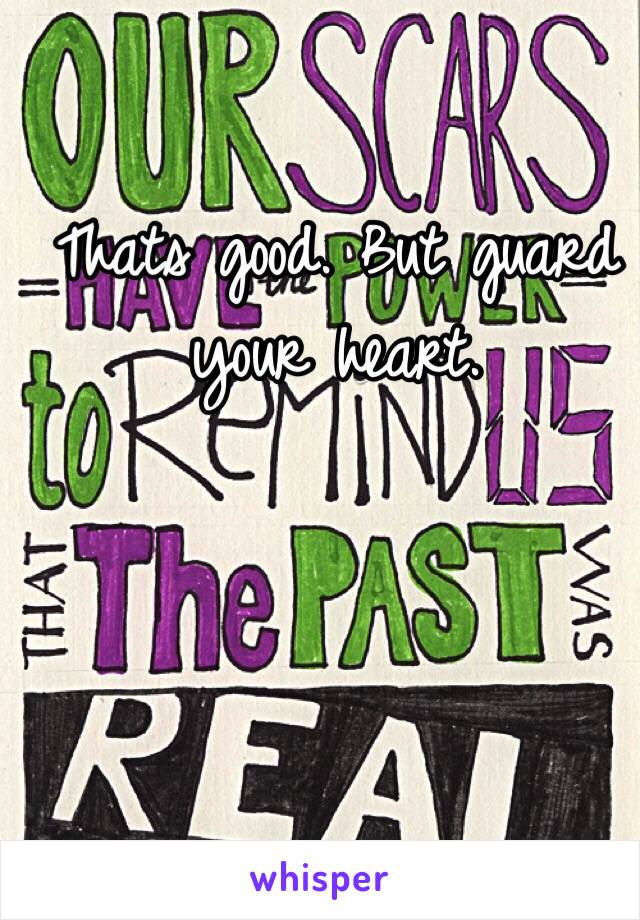 OUR SCARS
Thats good. But guard
= HAVE the POWER =
your heart.
to REMIND US
THAT The PAST WAS
REAL
whisper